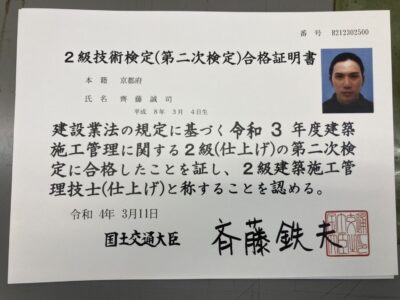 番 号 B212302500
2級技術検定(第二次検定)合格証明書
本 籍 京都府
氏 名 齊 藤 誠 司
平成 8年 3月 4日生
建設業法の規定に基づく令和 3 年度建築
施工管理に関する2級(仕上げ)の第二次検
定に合格したことを証し、2級建築施工管
理技士(仕上げ)と称することを認める。
令和 4年 3月11日
国土交通大臣 斉藤鉄夫